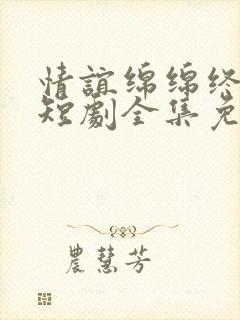 情谊绵绵终
短劇全集免
農慧芳